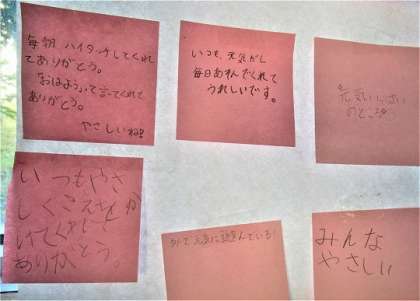 毎朝 ハイタッチしてくれ
てありがとう。
「おはよう」って言ってくれて
ありがとう。
やさしいね!!
いつも、元気がよく
毎日あそんでくれて
うれしいです。
元気いっぱい
のところ
いつもやさ
しくこえをか
けてくれて
ありがとう。
外で元気に遊んでいる!
みんな
やさしい